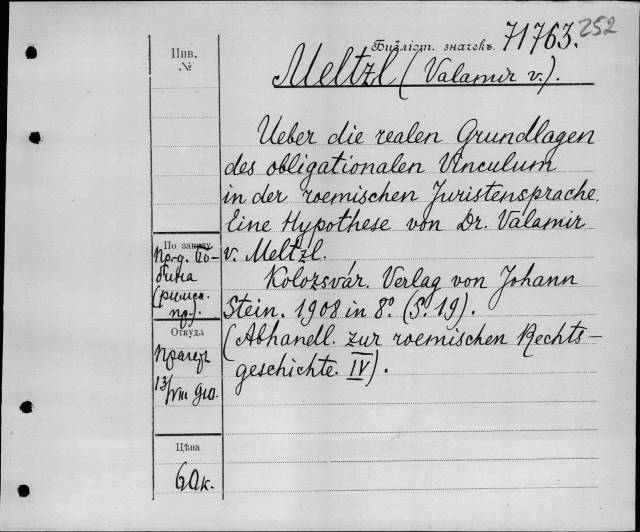 252
Библіот. значекъ. 71763.
Meltzl (Valamir v.).
Инв.
№
Ueber die realen Grundlagen
des obligationalen Vinculum
in der roemischen Juristensprache.
Eine Hypothese von Dr. Valamir
v. Meltzl.
Kolozsvár. Verlag von Johann
Stein. 1908 in 8° (S. 19).
(Abhandl. zur roemischen Rechts-
geschichte. IV).
По заказу
бина
пр.).
Откуда
13/VIII 910.
Цѣна
60 к.